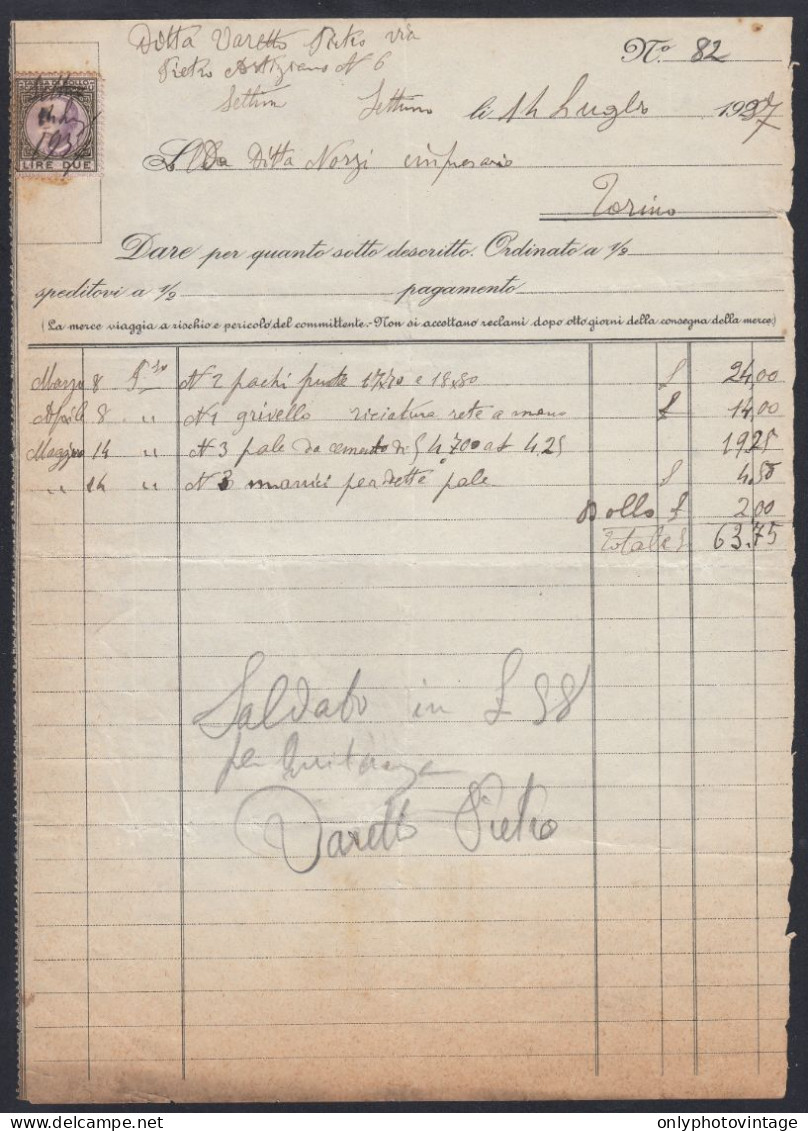 Ditta Varetto Pietro via
Pietro N 6
N.º 82
Settimo li 14 Luglio 1937
LIRE DUE
Ditta Norzi impresario
Torino
Dare per quanto sotto descritto. Ordinato a 1/2
speditovi a 1/2 pagamento
(La merce viaggia a rischio e pericolo del committente.-Non si accettano reclami dopo otto giorni della consegna della merce)
Marzo 8 N 2 pachi 17x70 e 18x80 £ 24,00
Aprile 8 " N 1 grivello rete a mano £ 14,00
Maggio 14 " N 3 pale da cemento di 4,700 a £ 4,25 19,25
" 14 " N 3 manici per dette pale £ 4,50
Bollo £ 2,00
Totale £ 63.75
Saldato in £ 58
per quitanza
Varetto Pietro
onlyphotovintage